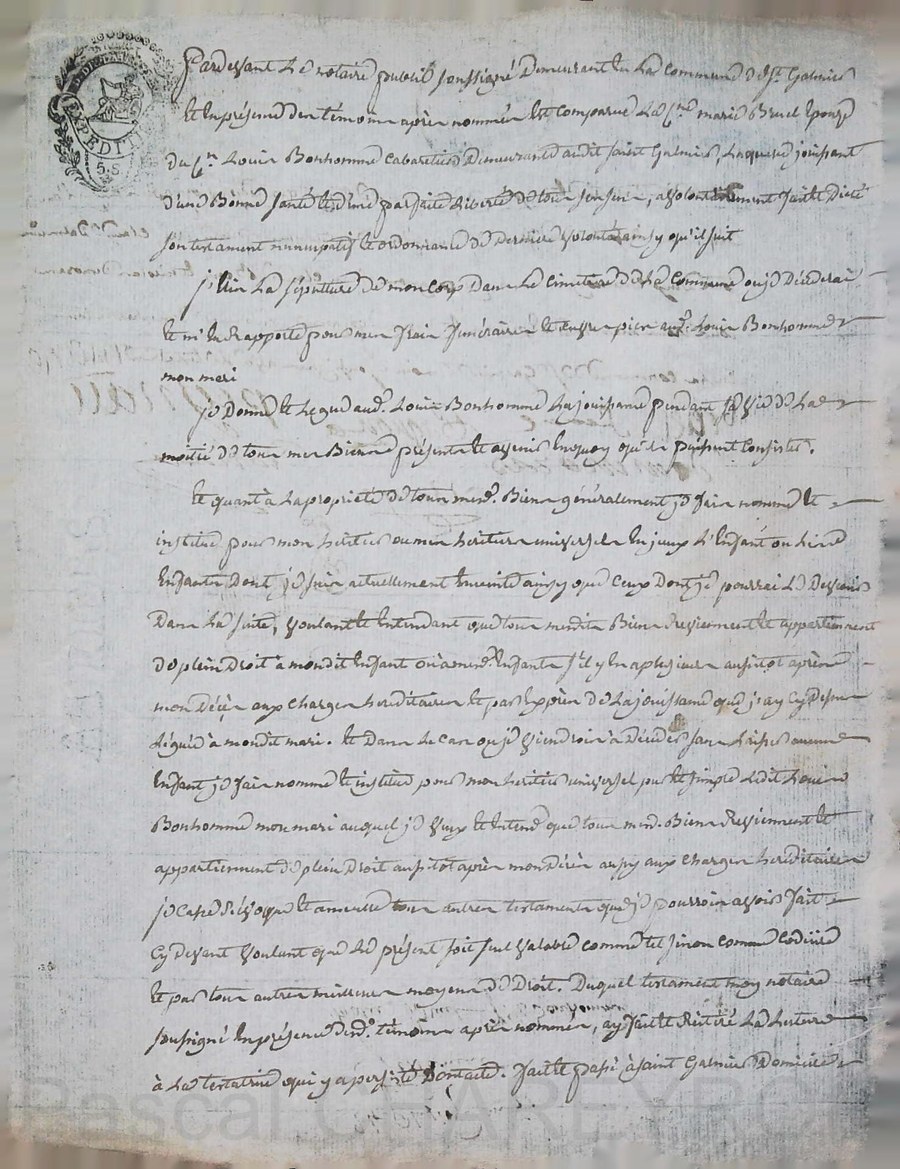 EXPEDITION
Pardevant Le notaire public soussigné Demeurant en La commune de St. Galmier
Et En présence des témoins après nommés Est comparue La Cne. marie Bruel Epouse
du Cen. Louis Bonhomme cabaretier Demeurante audit Saint Galmier, Laquelle jouissant
d'une Bonne santé Et d'une parfaite Liberté de tous ses sens, a volontairement fait Et Dicté
son testament nuncupatif Et ordonnance de Derniere volonté ainsy qu'il suit
j'Elis La sépulture de mon Corps Dans Le cimetiere de La Commune ou je Décéderai
Et m'En Rapporte pour mes frais funéraires Et œuvres pies aud. Louis Bonhomme
mon mari
je Donne Et Legue aud. Louis Bonhomme La jouissance pendant sa vie de La
moitié de tous mes Biens présents Et avenir En quoy qu'ils puissent Consister.
Et quant à La propriété de tous mesd. Biens généralement je fais nomme Et
institue pour mon heritier ou mes heritiers universels En jceux L'Enfant ou Les
Enfants Dont je suis actuellement Enceinte ainsy que Ceux Dont je pourrai Le Devenir
Dans La suite, voulant Et Entendant que tous mesdits Biens Reviennent Et appartiennent
de plein Droit à mondit Enfant ou à mesd. Enfants s'il y En a plusieurs aussitot après
mon Décès aux charges héréditaires Et par Exprès de La jouissance que j'ay Cy Dessus
Légué à mondit mari. Et Dans Le cas ou je viendrois à Décéder sans Laisser aucuns
Enfants je fais nomme Et institue pour mon heritier universel pur Et simple Ledit Louis
Bonhomme mon mari auquel je veux Et Entend que tous mesd. Biens Reviennent Et
appartiennent de plein Droit aussitot après mon Décès aussy aux charges héréditaires
je Casse Révoque Et annulle tous autres testaments que je pourrois avoir fait
Cy devant voulant que Le présent soit seul valable comme tel sinon comme Codicile
Et par tous autres meilleurs moyens de Droit. Duquel testament moy notaire
soussigné En présence desd. témoins après nommés, ay fait Et Réitéré La Lecture
à La testatrice qui y a persisté Contante. fait Et passé à Saint Galmier Domicile